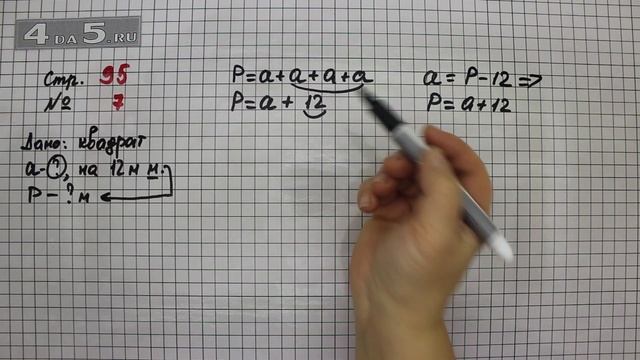 4 DA 5.RU
Стр. 95
№ 7
Дано: квадрат
a - ?, на 12 м м.
P - ? м
P = a + a + a + a
P = a + 12
a = P - 12 =>
P = a + 12